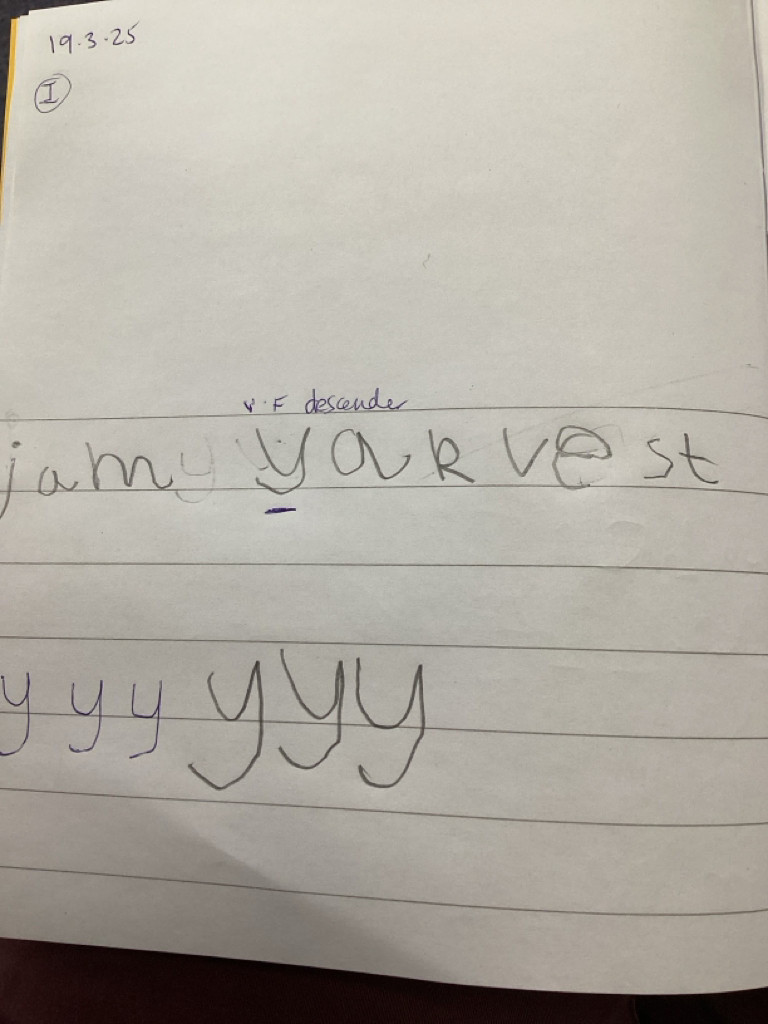 19.3.25
I
v.F descender
jam y yarvest
y y y y y y